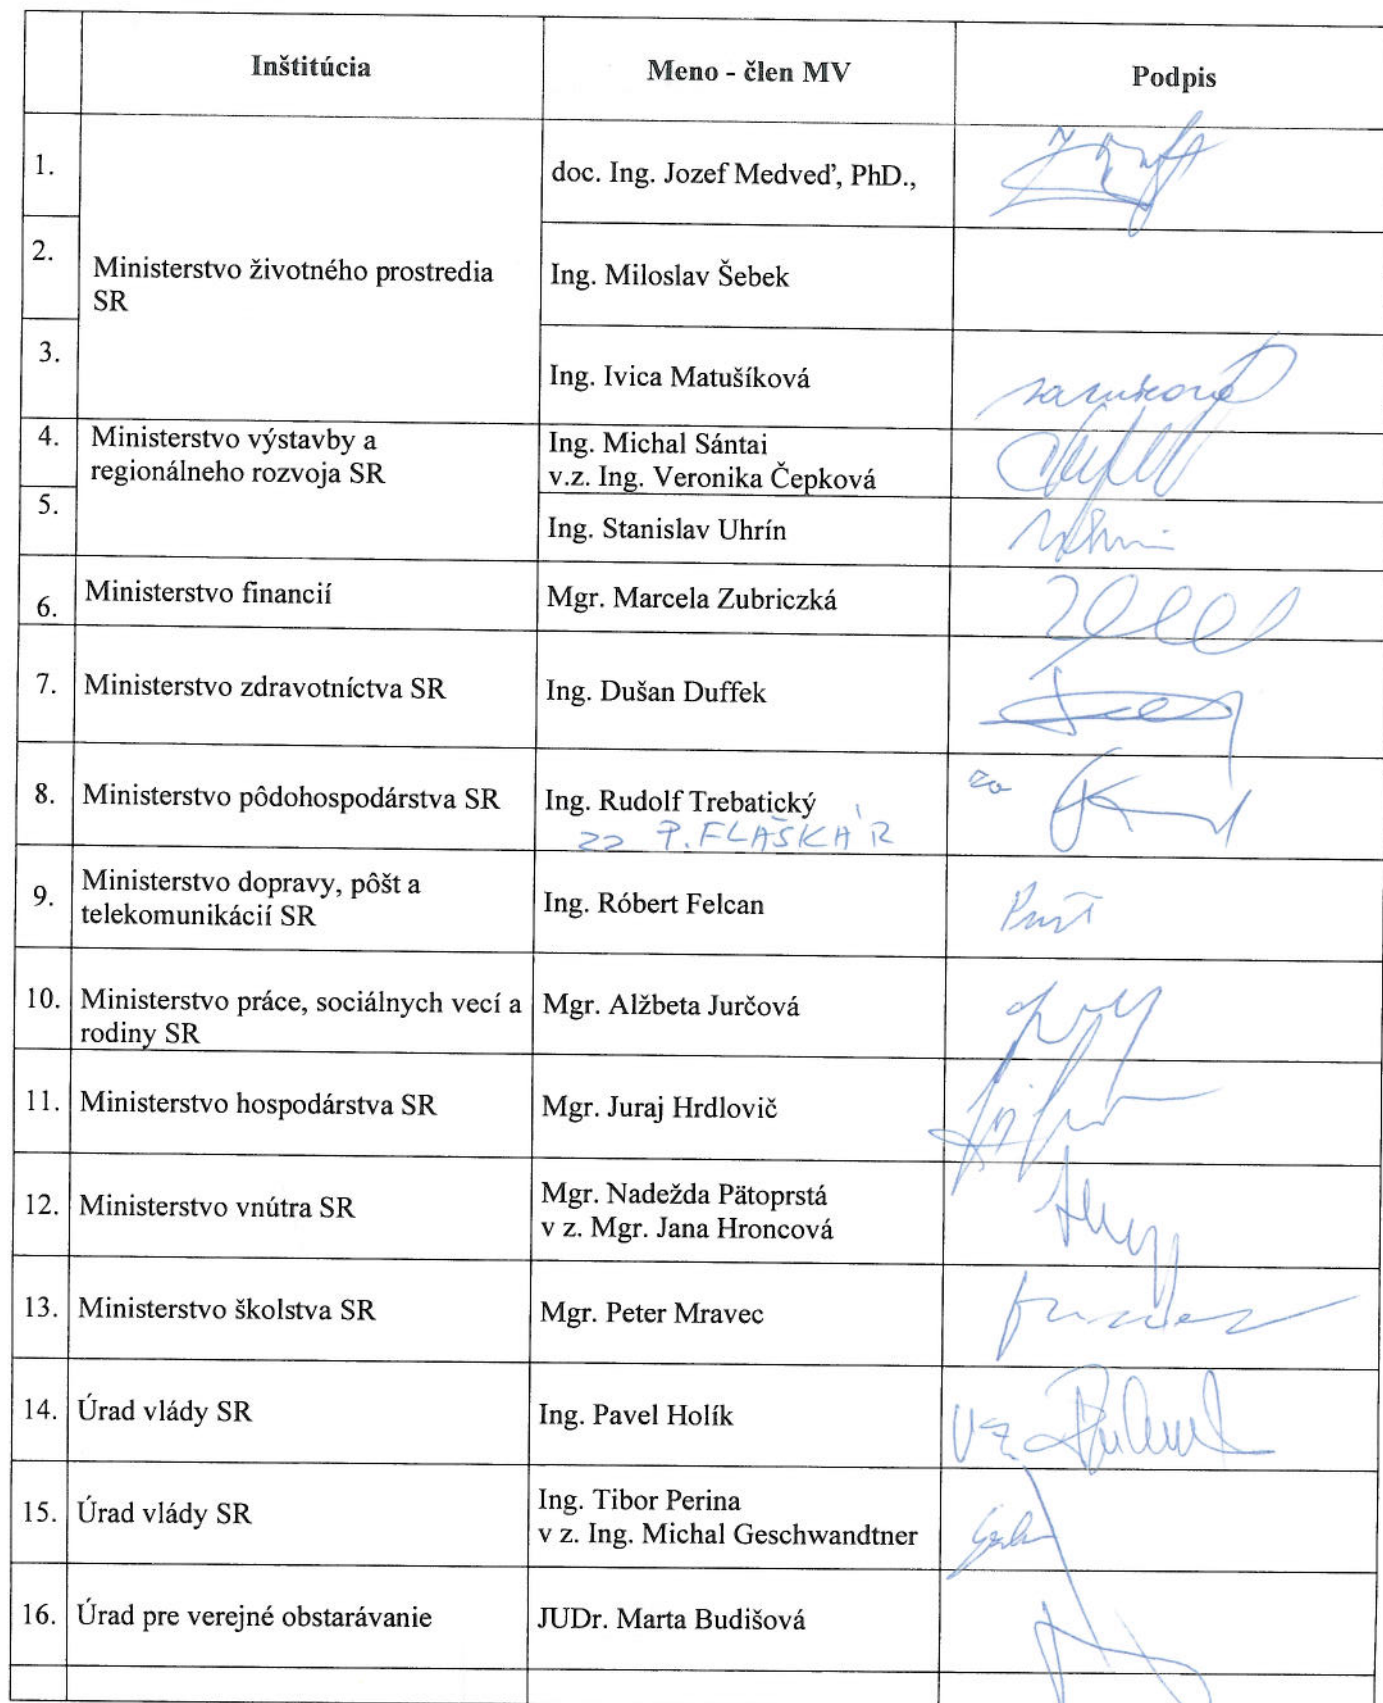 Inštitúcia
Meno - člen MV
Podpis
1.
doc. Ing. Jozef Medveď, PhD.,
2.
Ministerstvo životného prostredia
SR
Ing. Miloslav Šebek
3.
Ing. Ivica Matušíková
4.
Ministerstvo výstavby a
regionálneho rozvoja SR
Ing. Michal Sántai
v.z. Ing. Veronika Čepková
5.
Ing. Stanislav Uhrín
6.
Ministerstvo financií
Mgr. Marcela Zubriczká
7.
Ministerstvo zdravotníctva SR
Ing. Dušan Duffek
8.
Ministerstvo pôdohospodárstva SR
Ing. Rudolf Trebatický
P. FLAŠKÁR
za
9.
Ministerstvo dopravy, pôšt a
telekomunikácií SR
Ing. Róbert Felcan
10.
Ministerstvo práce, sociálnych vecí a
rodiny SR
Mgr. Alžbeta Jurčová
11.
Ministerstvo hospodárstva SR
Mgr. Juraj Hrdlovič
12.
Ministerstvo vnútra SR
Mgr. Nadežda Pätoprstá
v z. Mgr. Jana Hroncová
13.
Ministerstvo školstva SR
Mgr. Peter Mravec
14.
Úrad vlády SR
Ing. Pavel Holík
vz
15.
Úrad vlády SR
Ing. Tibor Perina
v z. Ing. Michal Geschwandtner
16.
Úrad pre verejné obstarávanie
JUDr. Marta Budišová